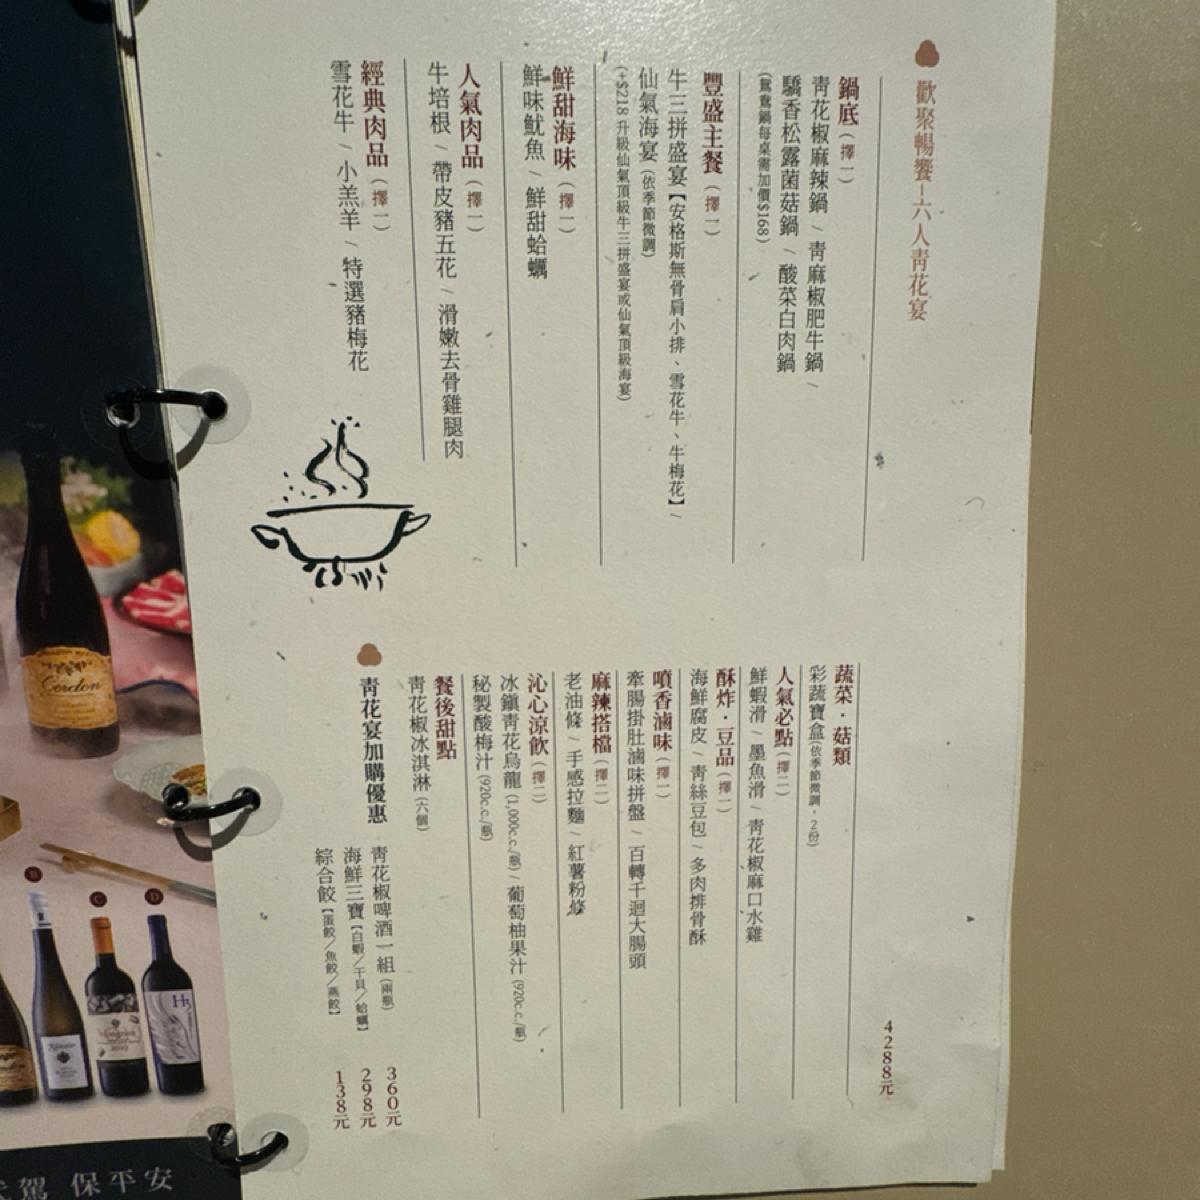 歡聚暢饗－六人青花宴
4288元
鍋底（擇一）
青花椒麻辣鍋／青麻椒肥牛鍋／
驕香松露菌菇鍋／酸菜白肉鍋
（鴛鴦鍋每桌需加價$168）
豐盛主餐（擇一）
牛三拼盛宴【安格斯無骨肩小排、雪花牛、牛梅花】／
仙氣海宴（依季節微調）
（+$218 升級仙氣頂級牛三拼盛宴或仙氣頂級海宴）
鮮甜海味（擇一）
鮮味魷魚／鮮甜蛤蠣
人氣肉品（擇一）
牛培根／帶皮豬五花／滑嫩去骨雞腿肉
經典肉品（擇一）
雪花牛／小羔羊／特選豬梅花
蔬菜．菇類
彩蔬寶盒（依季節微調，2份）
人氣必點（擇二）
鮮蝦滑／墨魚滑／青花椒麻口水雞
酥炸．豆品（擇一）
海鮮腐皮／青絲豆包／多肉排骨酥
噴香滷味（擇一）
牽腸掛肚滷味拼盤／百轉千迴大腸頭
麻辣搭檔（擇二）
老油條／手感拉麵／紅薯粉條
沁心涼飲（擇二）
冰鎮青花烏龍（1,000c.c./瓶）／葡萄柚果汁（920c.c./瓶）
秘製酸梅汁（920c.c./瓶）
餐後甜點
青花椒冰淇淋（六個）
青花宴加購優惠
青花椒啤酒一組（兩瓶） 360元
海鮮三寶【白蝦／干貝／蛤蠣】 298元
綜合餃【蛋餃／魚餃／燕餃】 138元
Cordon
B
C
D
駕 保平安